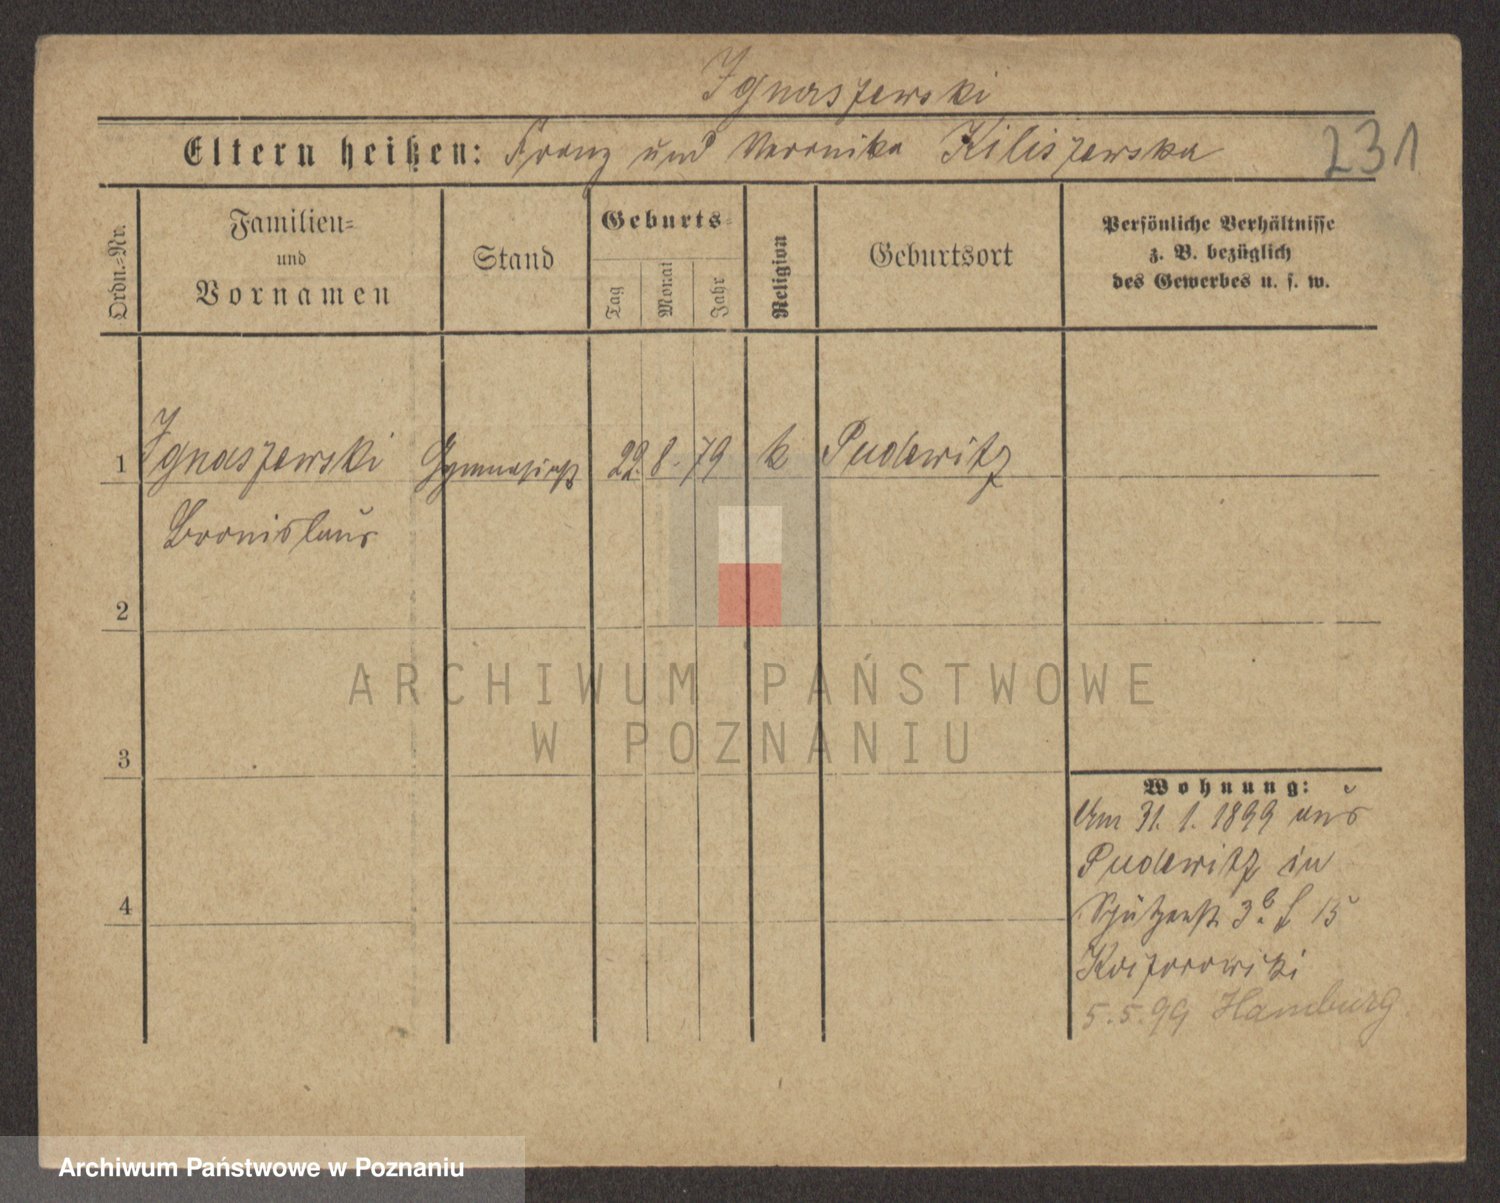 Ignaszewski
Eltern heißen: Franz und Veronika Kiliszewska
231
Ordn.=Nr.
Familien=
und
Vornamen
Stand
Geburts=
Tag
Monat
Jahr
Religion
Geburtsort
Persönliche Verhältnisse
z. B. bezüglich
des Gewerbes u. s. w.
1 Ignaszewski 22. 8. 79 k Pudewitz
Bronislaus
2
ARCHIWUM PAŃSTWOWE
W POZNANIU
3
Wohnung:
Am 31. 1. 1899 aus
Pudewitz in
Schützenstr 3 15
4
5.5.99 Hamburg
Archiwum Państwowe w Poznaniu